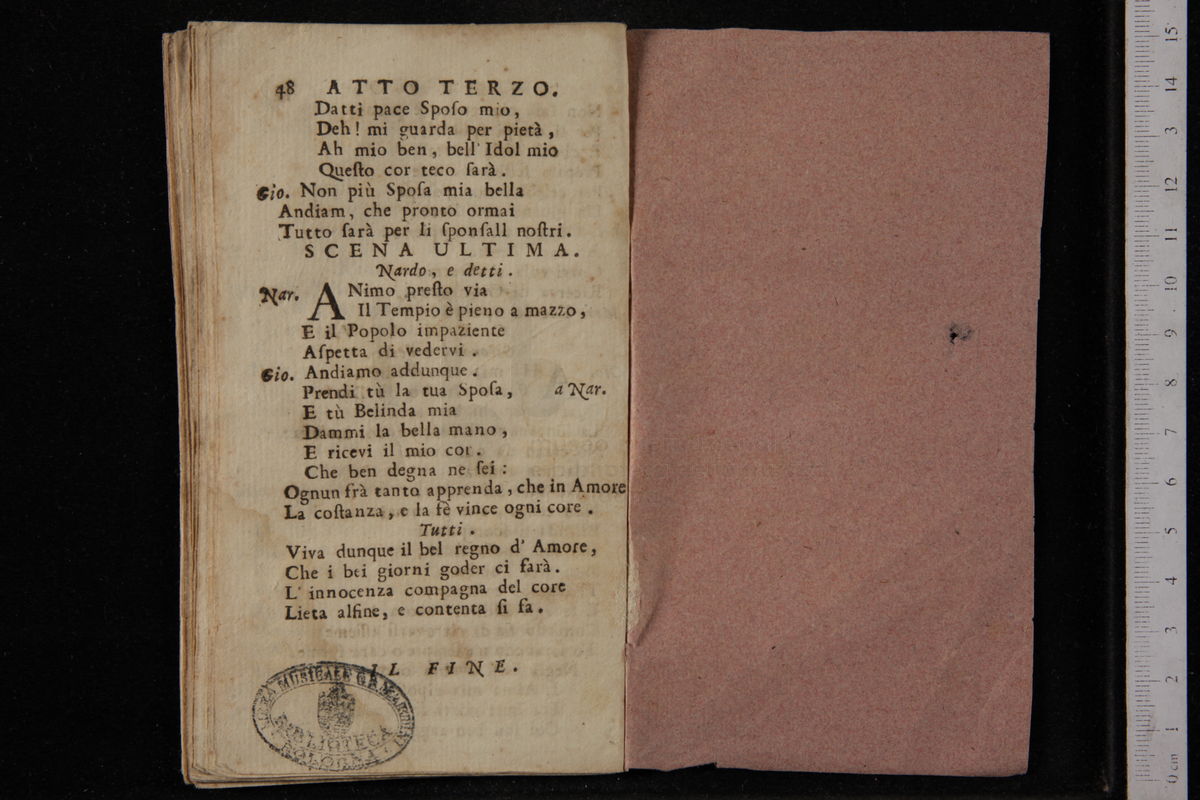 48 ATTO TERZO.
Datti pace Spoſo mio,
Deh! mi guarda per pietà,
Ah mio ben, bell' Idol mio
Queſto cor teco ſarà.
Gio. Non più Spoſa mia bella
Andiam, che pronto ormai
Tutto ſarà per li ſponſall noſtri.
SCENA ULTIMA.
Nardo, e detti.
Nar. ANimo preſto via
Il Tempio è pieno a mazzo,
E il Popolo impaziente
Aſpetta di vedervi.
Gio. Andiamo addunque.
Prendi tù la tua Spoſa, a Nar.
E tù Belinda mia
Dammi la bella mano,
E ricevi il mio cor.
Che ben degna ne ſei:
Ognun frà tanto apprenda, che in Amore
La coſtanza, e la fè vince ogni core.
Tutti.
Viva dunque il bel regno d' Amore,
Che i bei giorni goder ci farà.
L' innocenza compagna del core
Lieta alfine, e contenta ſi fa.
IL FINE.
MUSICALE
BIBLIOTECA
BOLOGNA
15
14
3
12
11
10
9
8
7
6
5
4
3
2
1
0 cm